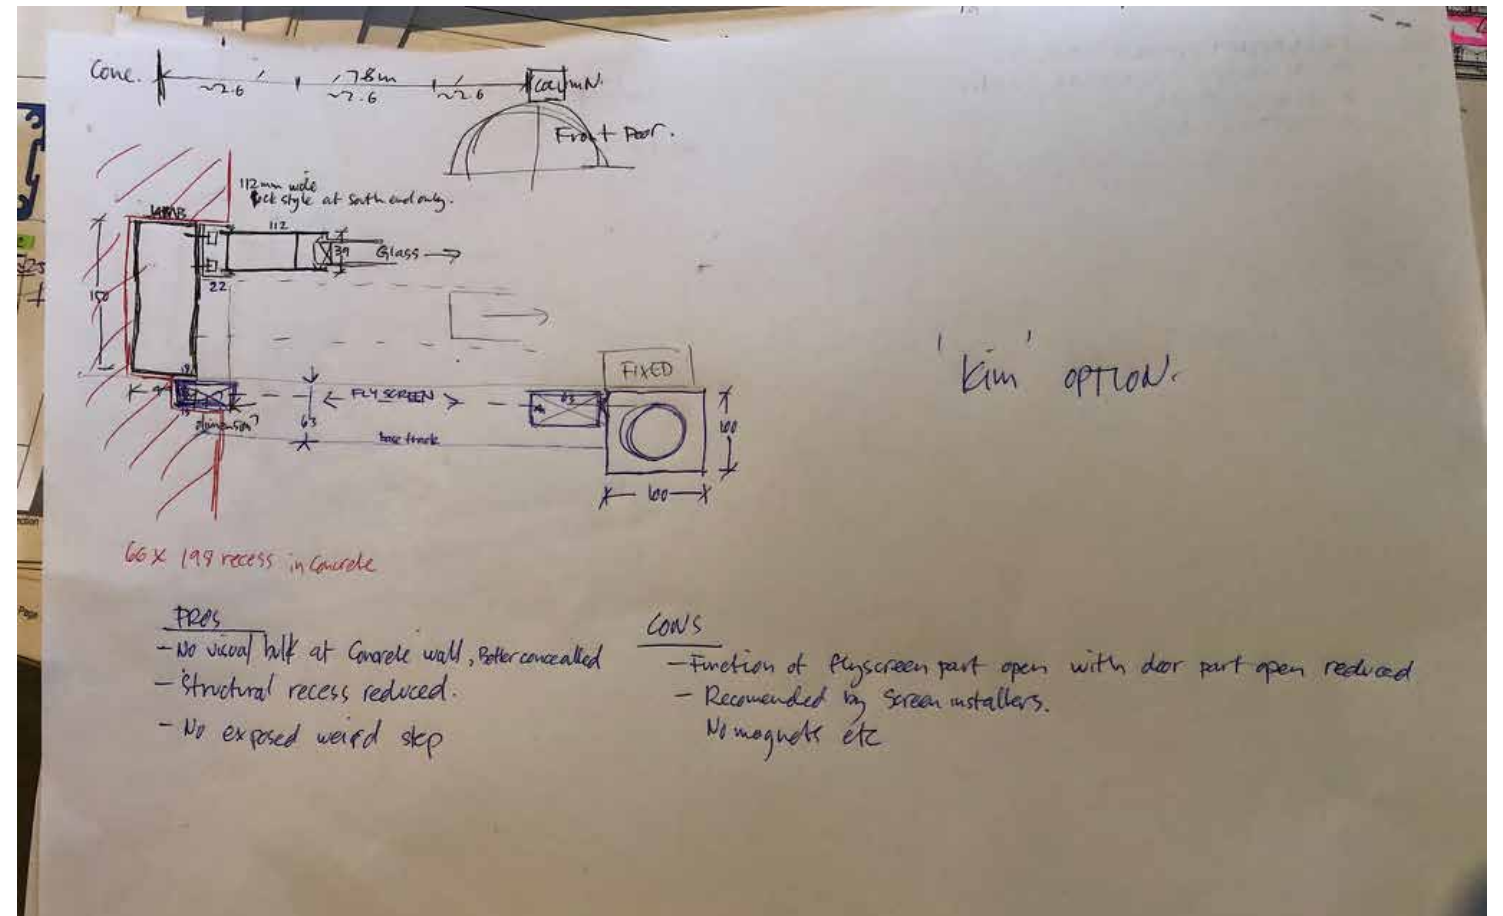 Conc.
~2.6
7.8m
~2.6
~2.6
column.
Front Door.
112mm wide
lock style at South end only.
JAMB
112
39
Glass
22
150
FIXED
FLY SCREEN
63
63
dimension?
base track
100
100
'Kim' OPTION.
66 x 198 recess in Concrete
PROS
- No visual bulk at Concrete wall, Better concealled
- Structural recess reduced.
- No exposed weird step
CONS
- Function of flyscreen part open with door part open reduced
- Recomended by Screen installers.
No magnets etc
Page